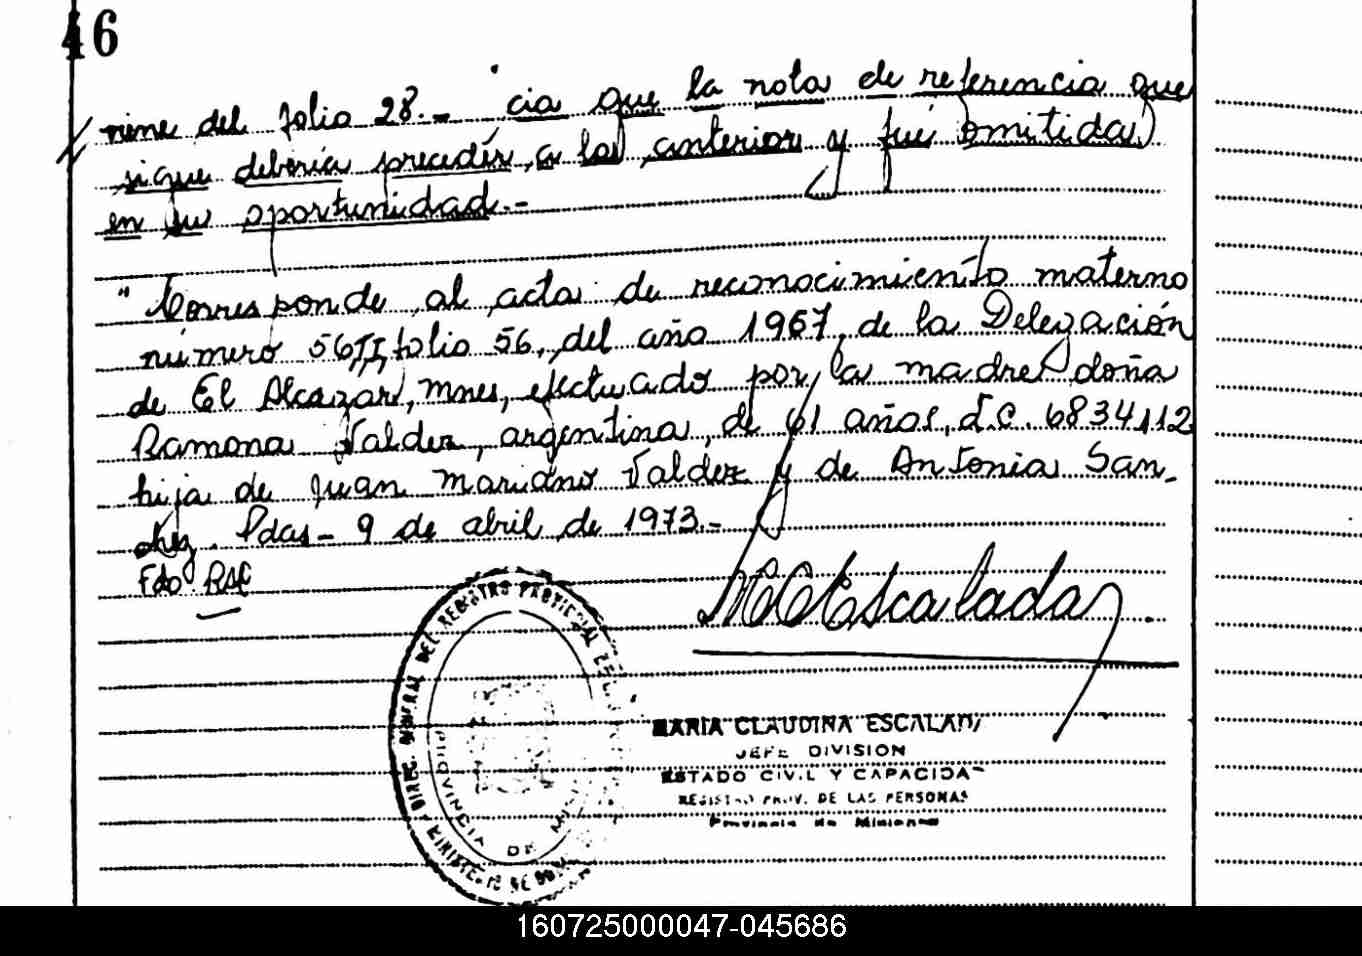 46
viene del folio 28.- "cia que la nota de referencia que
sigue debería preceder, a la anterior y fué omitida
en su oportunidad.-
"Corresponde al acta de reconocimiento materno
número 56 II folio 56, del año 1967, de la Delegación
de El Alcazar, Mnes, efectuado por la madre doña
Ramona Valdez, argentina, de 61 años, L.C. 6834112
hija de Juan Mariano Valdez y de Antonia San-
chez. Pdas- 9 de abril de 1973.-
Fdo.
MCEscalada
DIREC. GENERAL DEL REGISTRO PROVINCIAL
PROVINCIA DE
MARIA CLAUDINA ESCALADA
JEFE DIVISION
ESTADO CIVIL Y CAPACIDAD
REGISTRO PROV. DE LAS PERSONAS
Provincia de Misiones
160725000047-045686